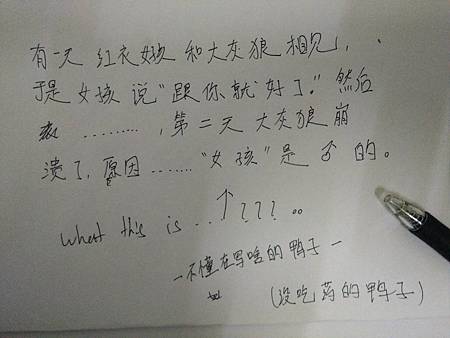 有一天 红衣女孩 和大灰狼 相见，
于是 女孩 说“跟你就好了。”然后
........., 第二天 大灰狼 崩
溃了，原因.......“女孩”是 ♂ 的。
What this is ..↑???..
—不懂在写啥的鸭子—
(没吃药的鸭子)